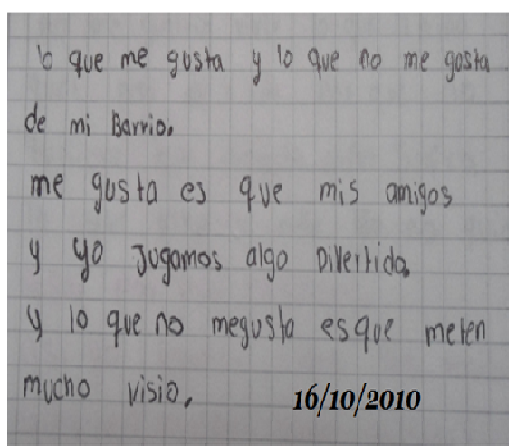 lo que me gusta y lo que no me gosta
de mi Barrio.
me gusta es que mis amigos
y yo Jugamos algo Divertido.
y lo que no megusta esque meten
mucho visio,
16/10/2010